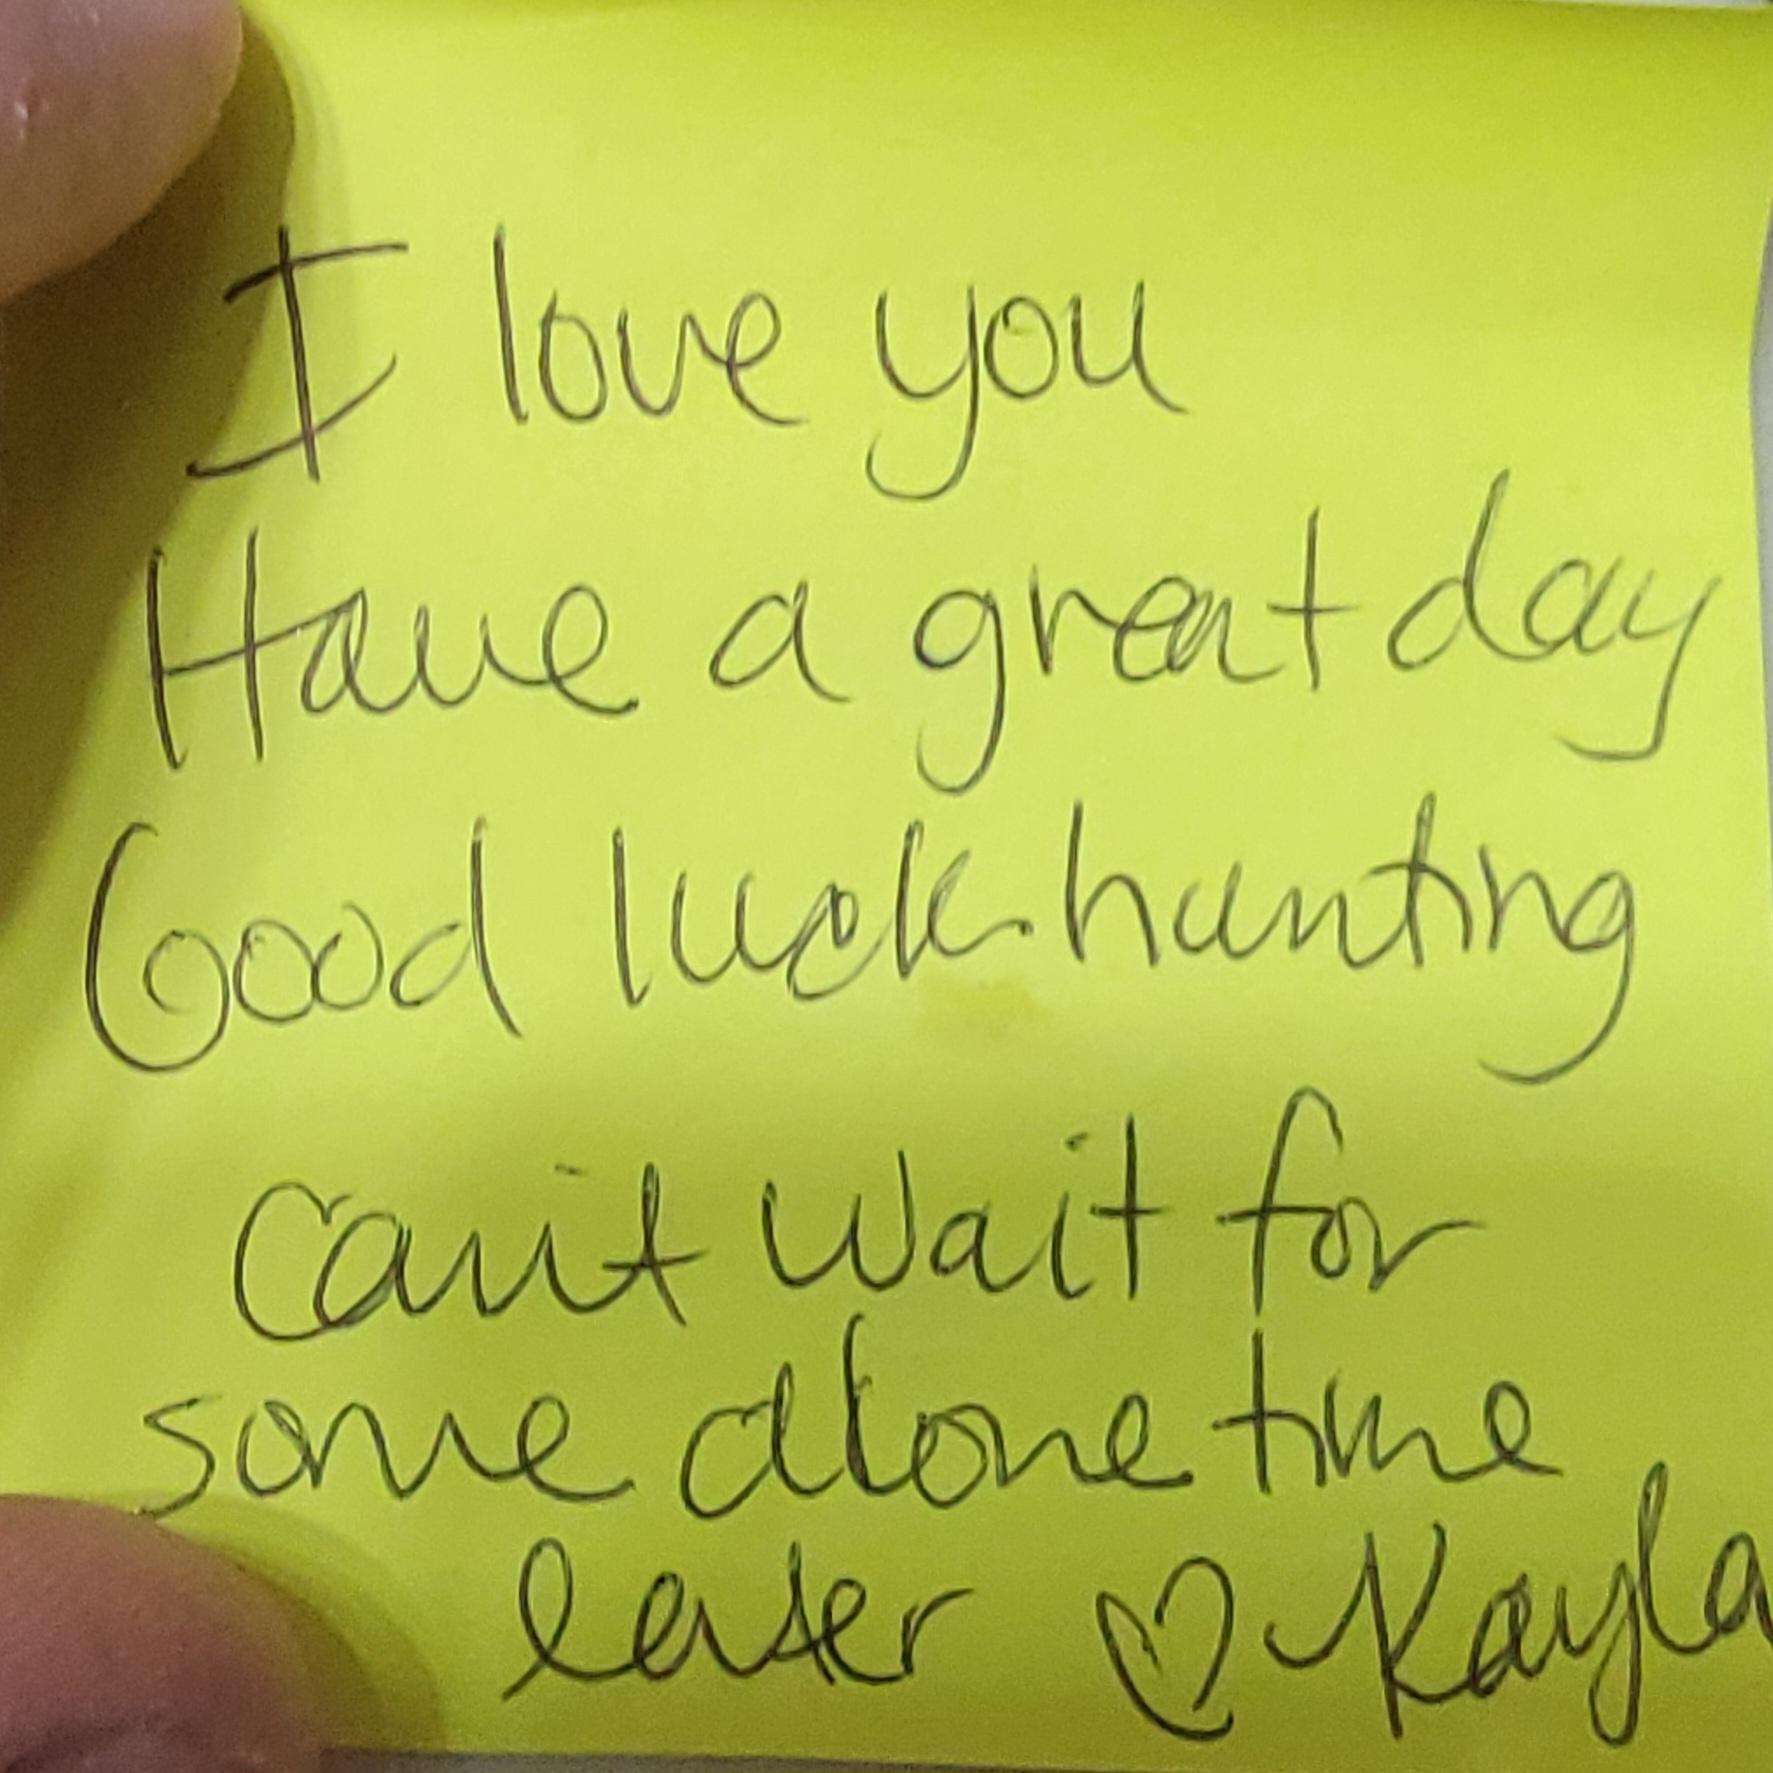 I love you
Have a great day
Good luck hunting
Can't wait for
some alone time
later ♡ Kayla